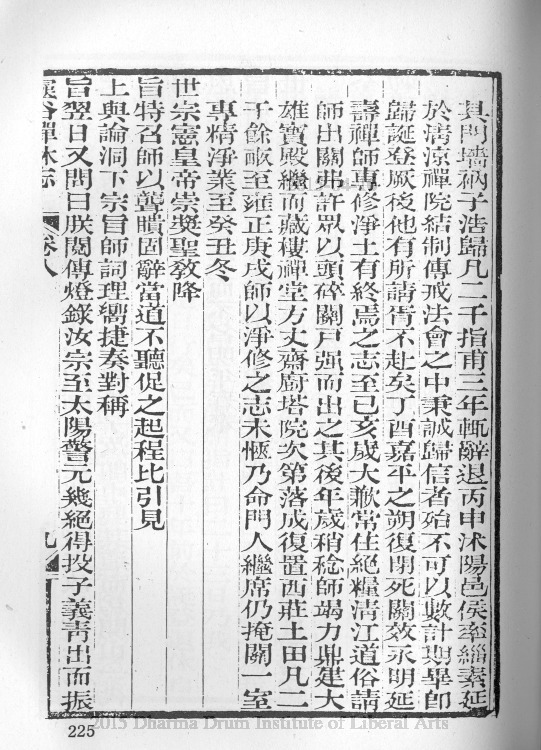 具門墻衲子浩歸凡二千指甫三年輒辭退丙申沭陽邑侯率緇素延
於清涼禪院結制傳戒法會之中秉誠歸信者殆不可以數計期畢即
歸誕登厥後他有所請胥不赴矣丁酉嘉平之朔復閉死關效永明延
壽禪師專修淨土有終焉之志至己亥歲大歉常住絕糧清江道俗請
師出關弗許眾以頭碎關戶强而出之其後年歲稍稔師竭力鼎建大
雄寶殿繼而藏樓禪堂方丈齋廚塔院次第落成復置西莊土田凡二
千餘畝至雍正庚戌師以淨修之志未愜乃命門人繼席仍掩關一室
專精淨業至癸丑冬
世宗憲皇帝崇獎聖教降
旨特召師以聾聵固辭當道不聽促之起程比引見
上與論洞下宗旨師詞理嚮捷奏對稱
旨翌日又問曰朕閱傳燈錄汝宗至太陽警元幾絕得投子義青出而振
雲谷禪林志 卷八 九
225
2015 Dharma Drum Institute of Liberal Arts